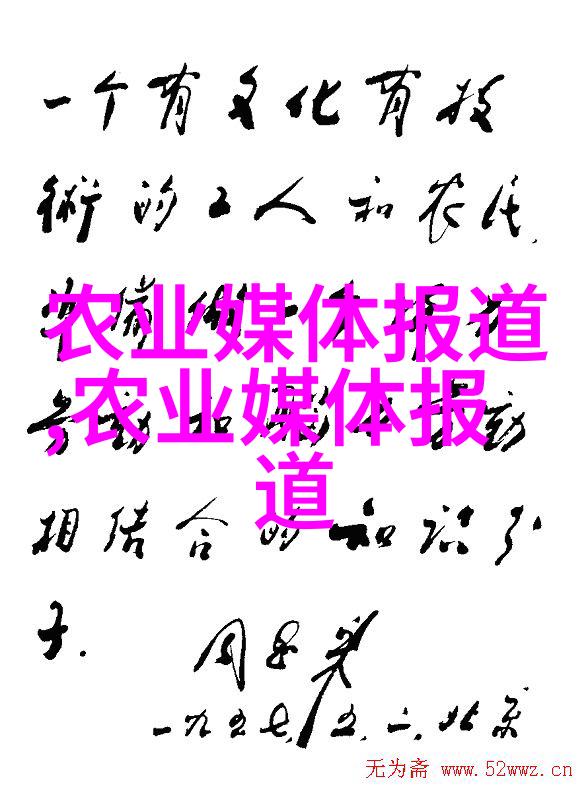 一个有文化有技
術的工人和农民,
农业媒体报道
农业媒体报
道
劳動和
動
相结合的知识分
子.
周恩来
一九五七,五,一,北京
无为斋 www.52wwz.cn